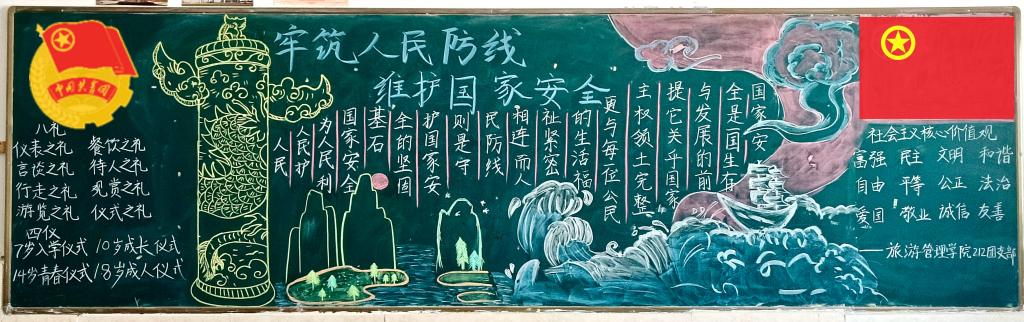 牢筑人民防线
维护国家安全
中国共青团
八礼
仪表之礼 餐饮之礼
言谈之礼 待人之礼
行走之礼 观赏之礼
游览之礼 仪式之礼
四仪
7岁入学仪式 10岁成长仪式
14岁青春仪式 18岁成人仪式
国家安
全是国生存
与发展的前
提它关乎国家
主权领土完整
更与每位公民
的生活福
祉紧密
相连而人
民防线
则是守
护国家安
全的坚固
基石
国家安全
为人民利
人民护
人民
社会主义核心价值观
富强 民主 文明 和谐
自由 平等 公正 法治
爱国 敬业 诚信 友善
——旅游管理学院212团支部